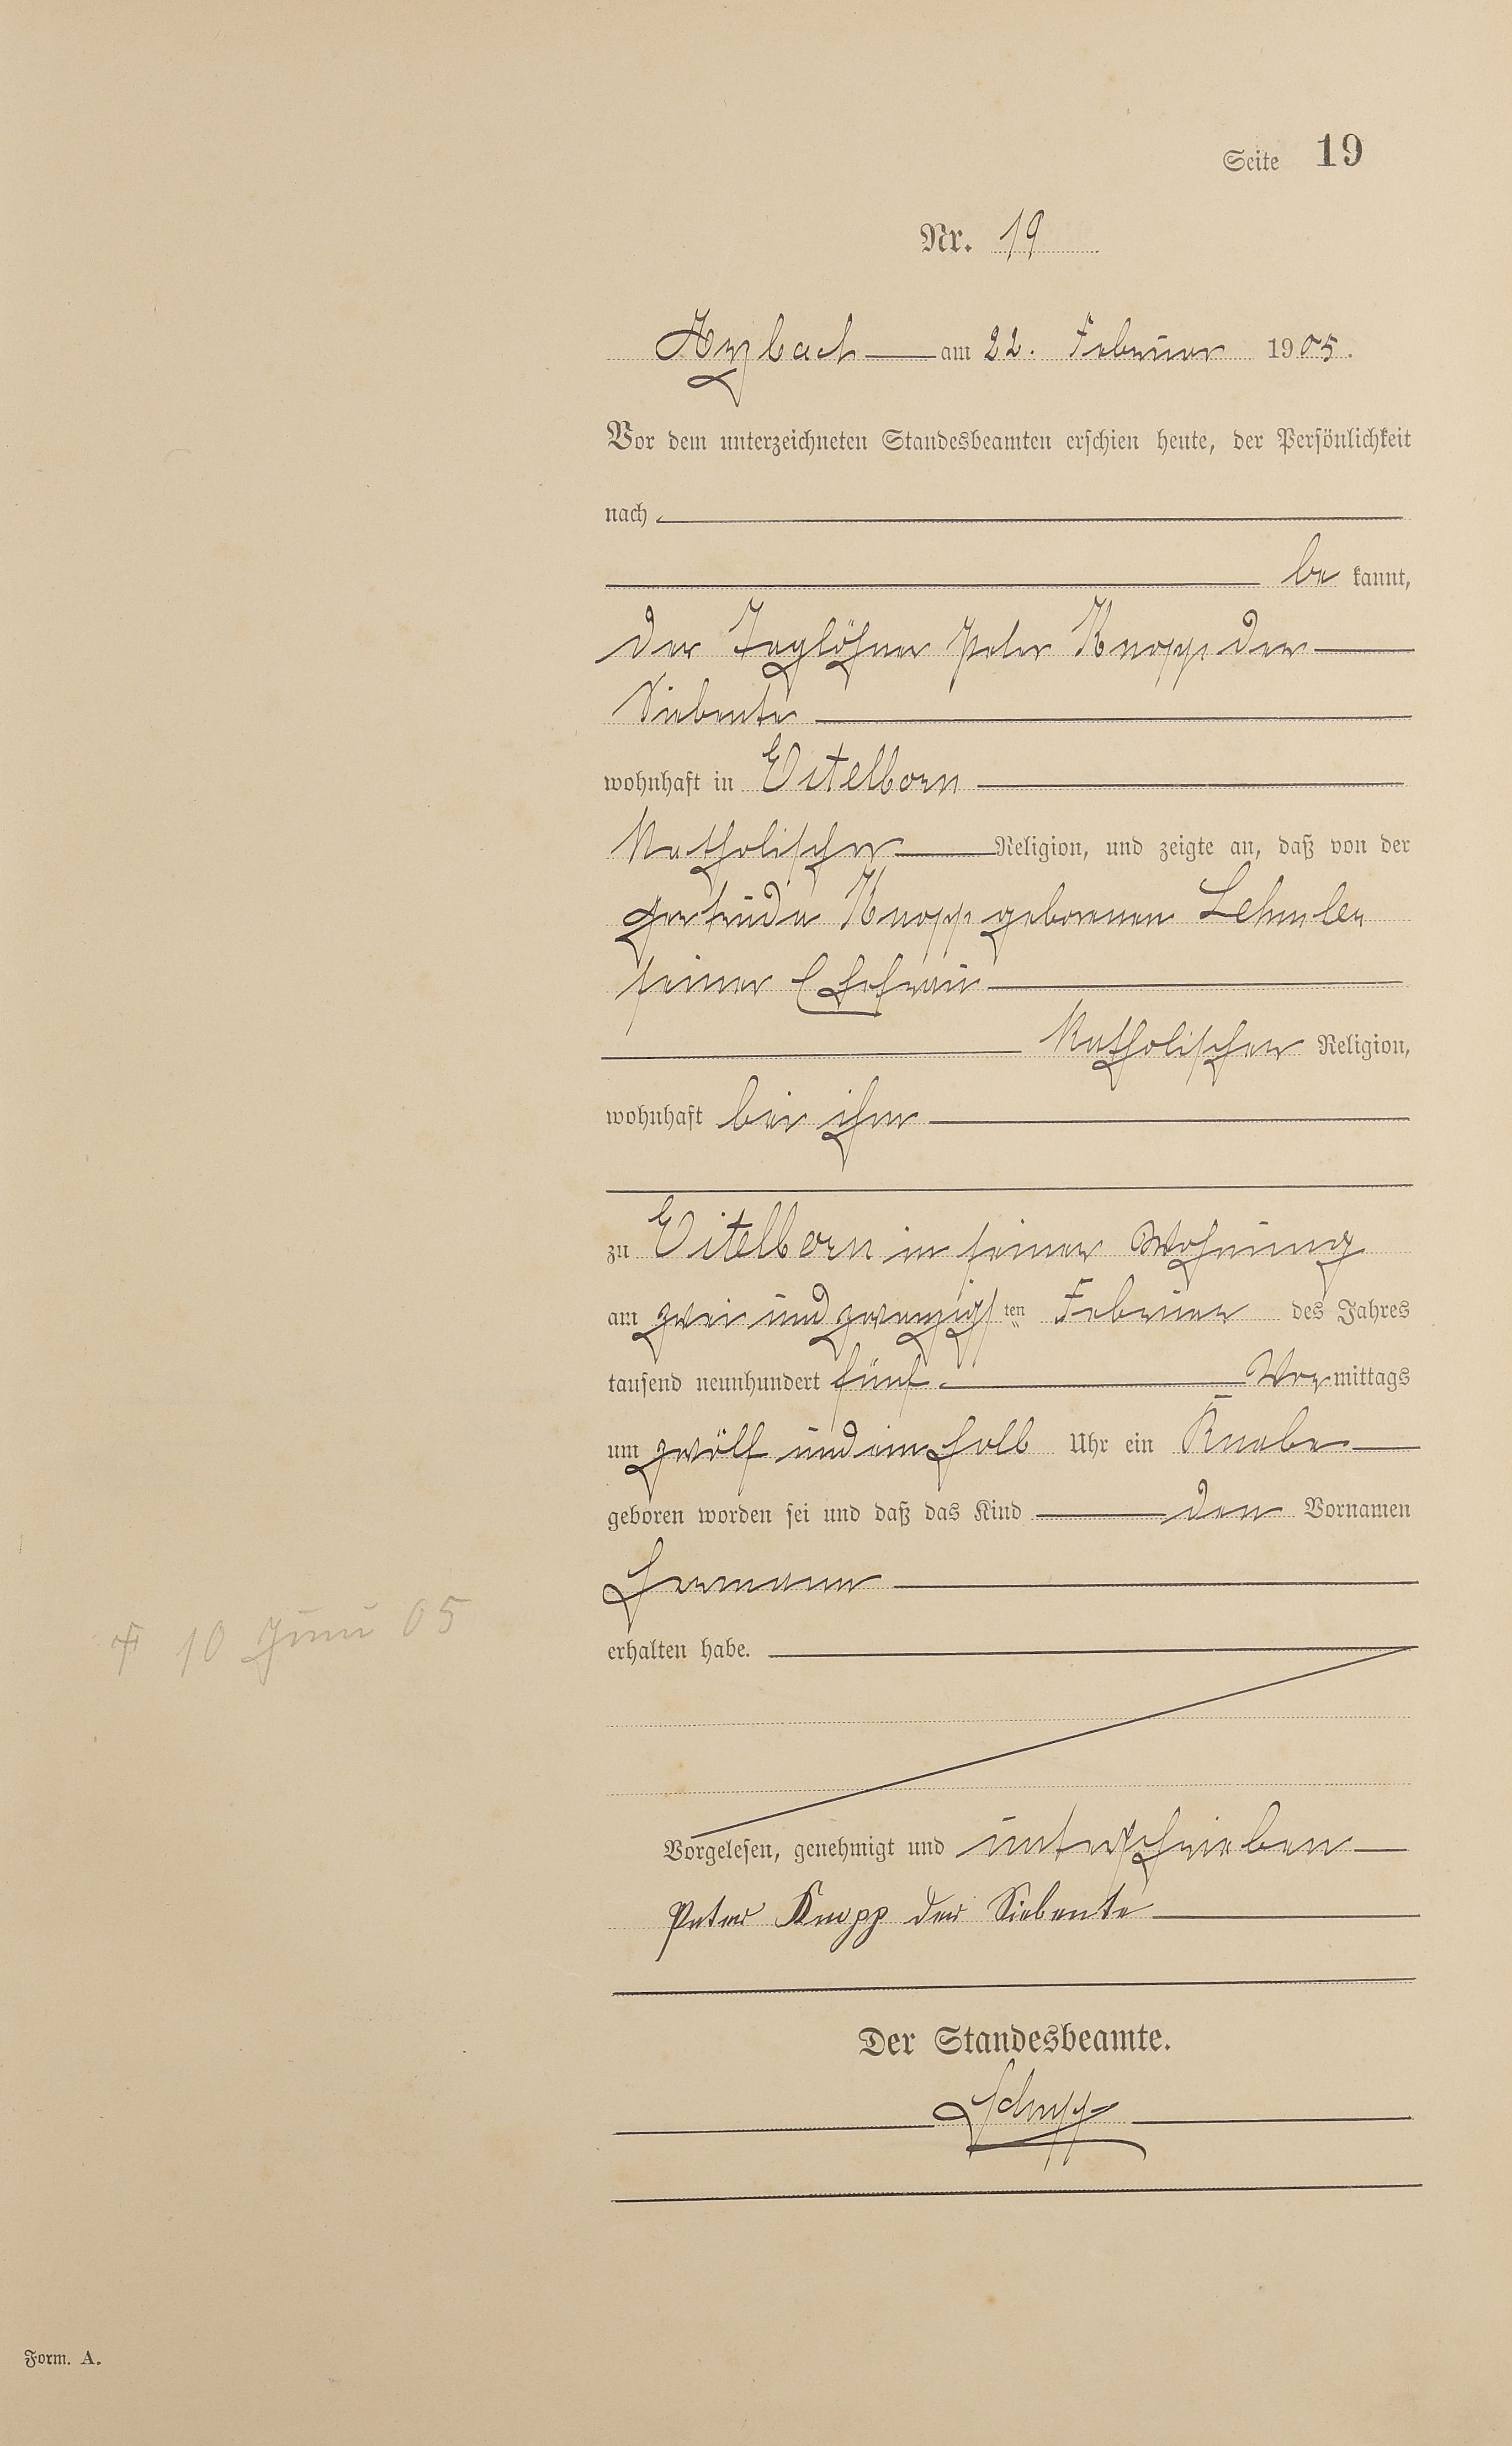 Seite 19
Nr. 19
Arzbach am 22. Februar 1905.
Vor dem unterzeichneten Standesbeamten erschien heute, der Persönlichkeit
nach
be kannt,
der Taglöhner Peter Knopp der
Siebente
wohnhaft in Eitelborn
Katholischer Religion, und zeigte an, daß von der
Gertruda Knopp geborenen Lehmler
seiner Ehefrau
Katholischer Religion,
wohnhaft bei ihm
zu Eitelborn in seiner Wohnung
am zwei und zwanzigsten Februar des Jahres
tausend neunhundert fünf Vormittags
um zwölf und ein halb Uhr ein Knabe
geboren worden sei und daß das Kind den Vornamen
Hermann
erhalten habe.
† 10 Juni 05
Vorgelesen, genehmigt und unterschrieben
Peter Knopp der Siebente
Der Standesbeamte.
Schupp
Form. A.